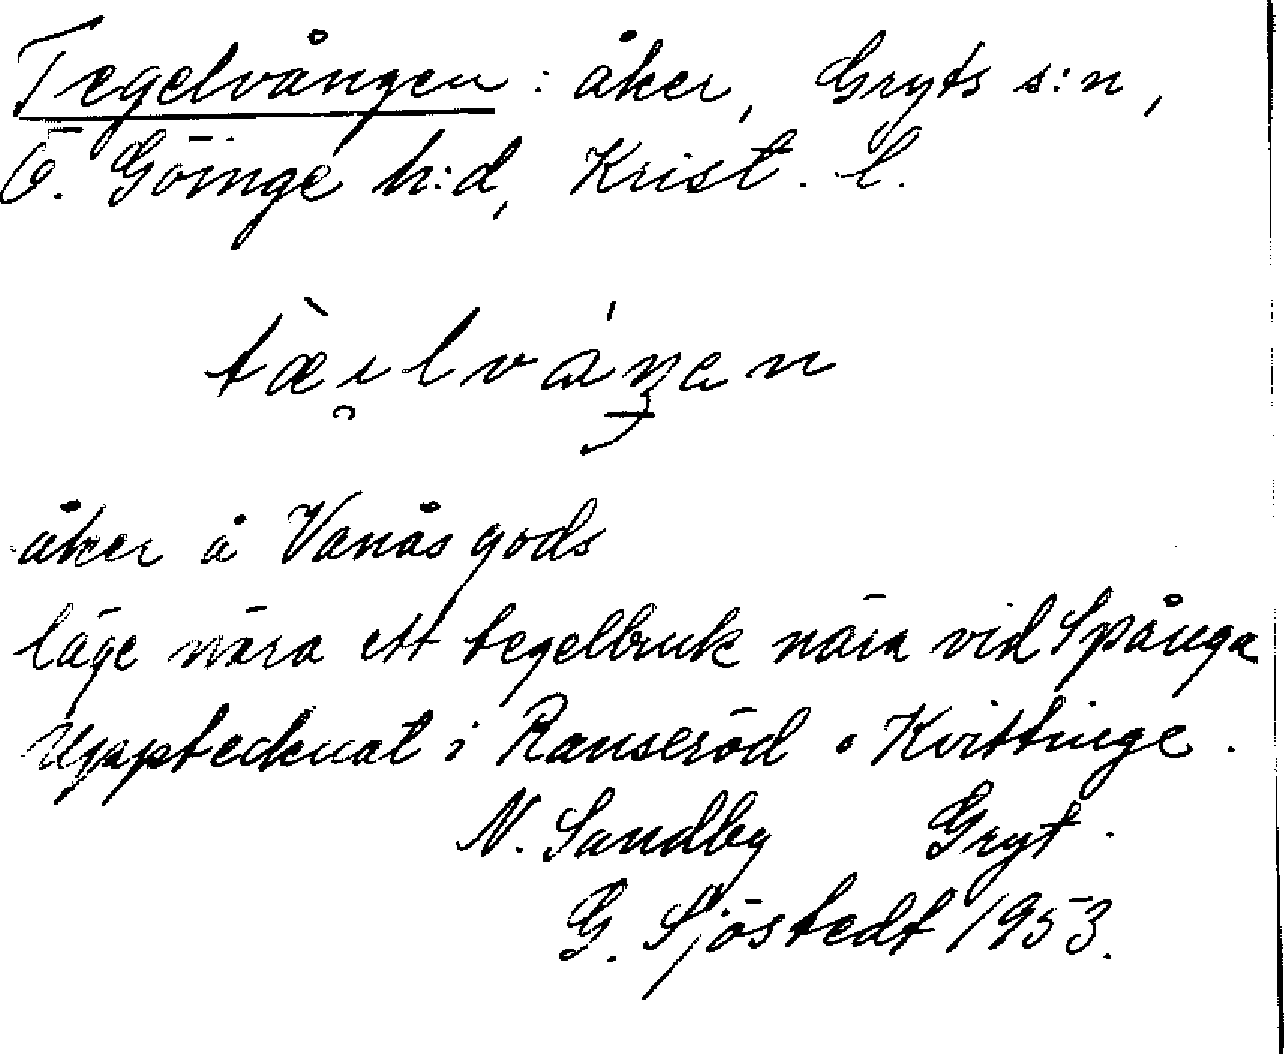 Tegelvången : åker, Gryts s:n,
Ö. Göinge h:d, Krist. l.
tæ̀i̯lváŋen
åker å Vanås gods
läge nära ett tegelbruk nära vid Spånga
Upptecknat i Ranseröd o Kvittinge.
N. Sandby Gryt.
G. Sjöstedt 1953.